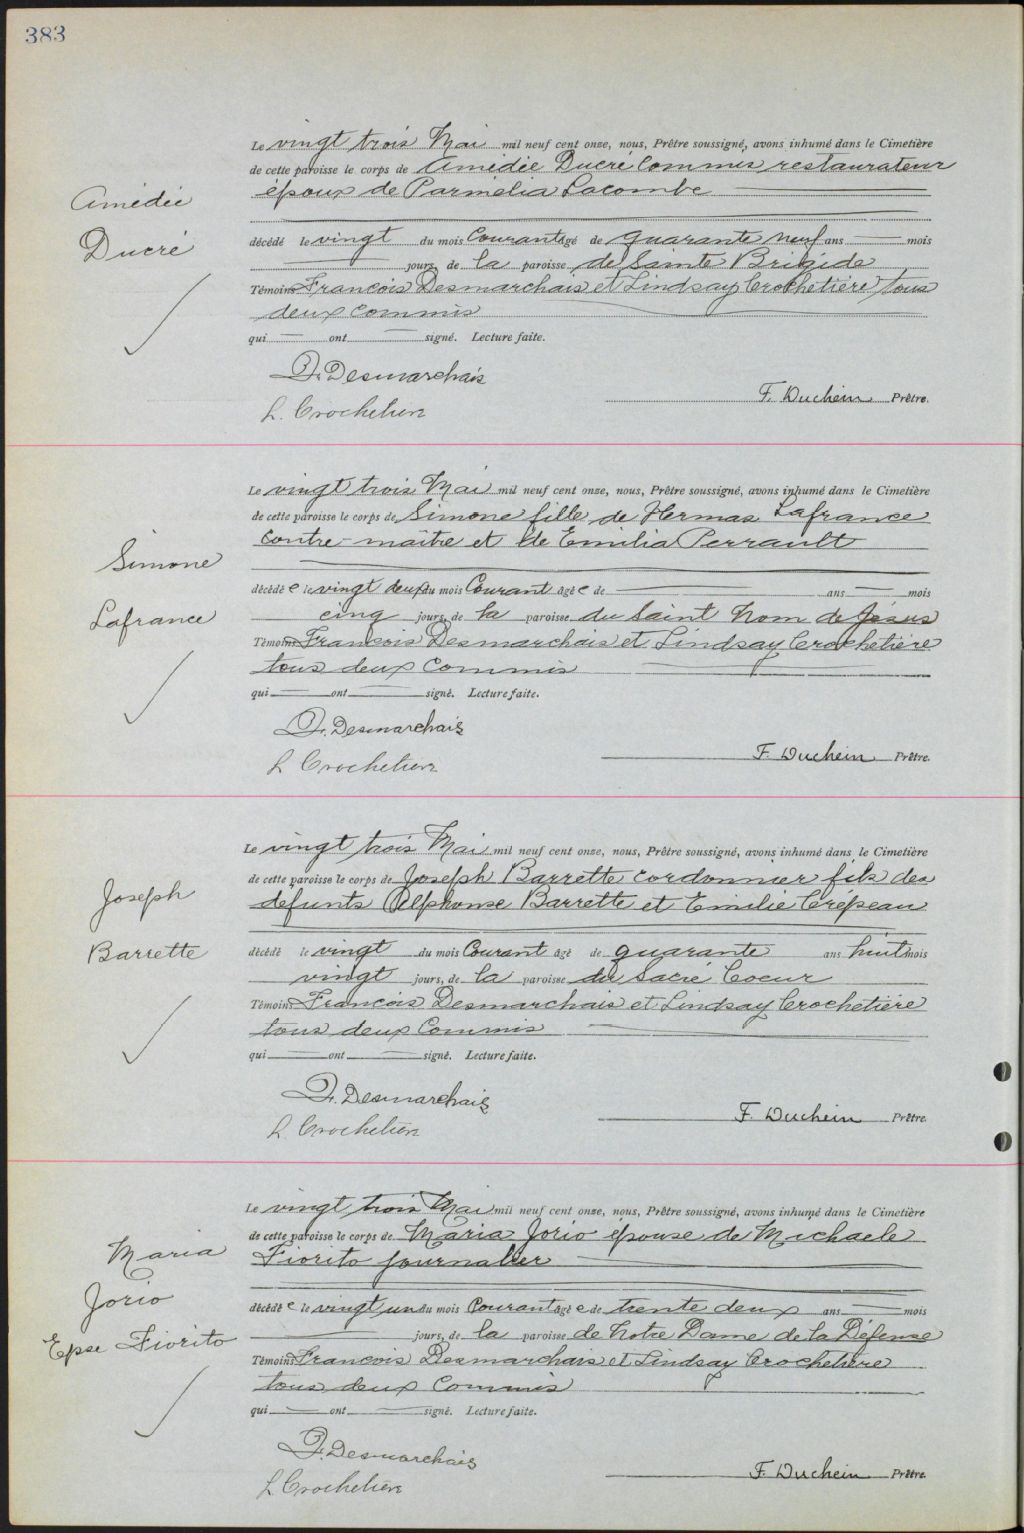 383
Amédée
Ducré
Le vingt trois Mai mil neuf cent onze, nous, Prêtre soussigné, avons inhumé dans le Cimetière
de cette paroisse le corps de Amédée Ducré Commis restaurateur
époux de Parmélia Lacombe
décédé le vingt du mois Courant âgé de quarante neuf ans mois
jours, de la paroisse de Sainte Brigide
Témoins Francois Desmarchais et Lindsay Crochetière tous
deux commis
qui ont signé. Lecture faite.
F. Desmarchais
L. Crochetière
F. Duchein Prêtre.
Simone
Lafrance
Le vingt trois Mai mil neuf cent onze, nous, Prêtre soussigné, avons inhumé dans le Cimetière
de cette paroisse le corps de Simone fille de Hermas Lafrance
Contre-maître et de Emilia Perrault
décédé e le vingt deux du mois Courant âgé e de ans mois
cinq jours, de la paroisse du Saint Nom de Jésus
Témoins Francois Desmarchais et Lindsay Crochetière
tous deux commis
qui ont signé. Lecture faite.
F. Desmarchais
L Crochetière
F. Duchein Prêtre.
Joseph
Barrette
Le vingt trois Mai mil neuf cent onze, nous, Prêtre soussigné, avons inhumé dans le Cimetière
de cette paroisse le corps de Joseph Barrette cordonnier fils des
defunts Alphonse Barrette et Emilie Crépeau
décédé le vingt du mois Courant âgé de quarante ans huit mois
vingt jours, de la paroisse du Sacré Coeur
Témoins Francois Desmarchais et Lindsay Crochetière
tous deux Commis
qui ont signé. Lecture faite.
F. Desmarchais
L. Crochetière
F. Duchein Prêtre.
Maria
Jorio
Epse Fiorito
Le vingt trois Mai mil neuf cent onze, nous, Prêtre soussigné, avons inhumé dans le Cimetière
de cette paroisse le corps de Maria Jorio épouse de Michaele
Fiorito journalier
décédé e le vingt un du mois Courant âgé e de trente deux ans mois
jours, de la paroisse de Notre Dame de la Défense
Témoins Francois Desmarchais et Lindsay Crochetière
tous deux Commis
qui ont signé. Lecture faite.
F. Desmarchais
L Crochetière
F. Duchein Prêtre.